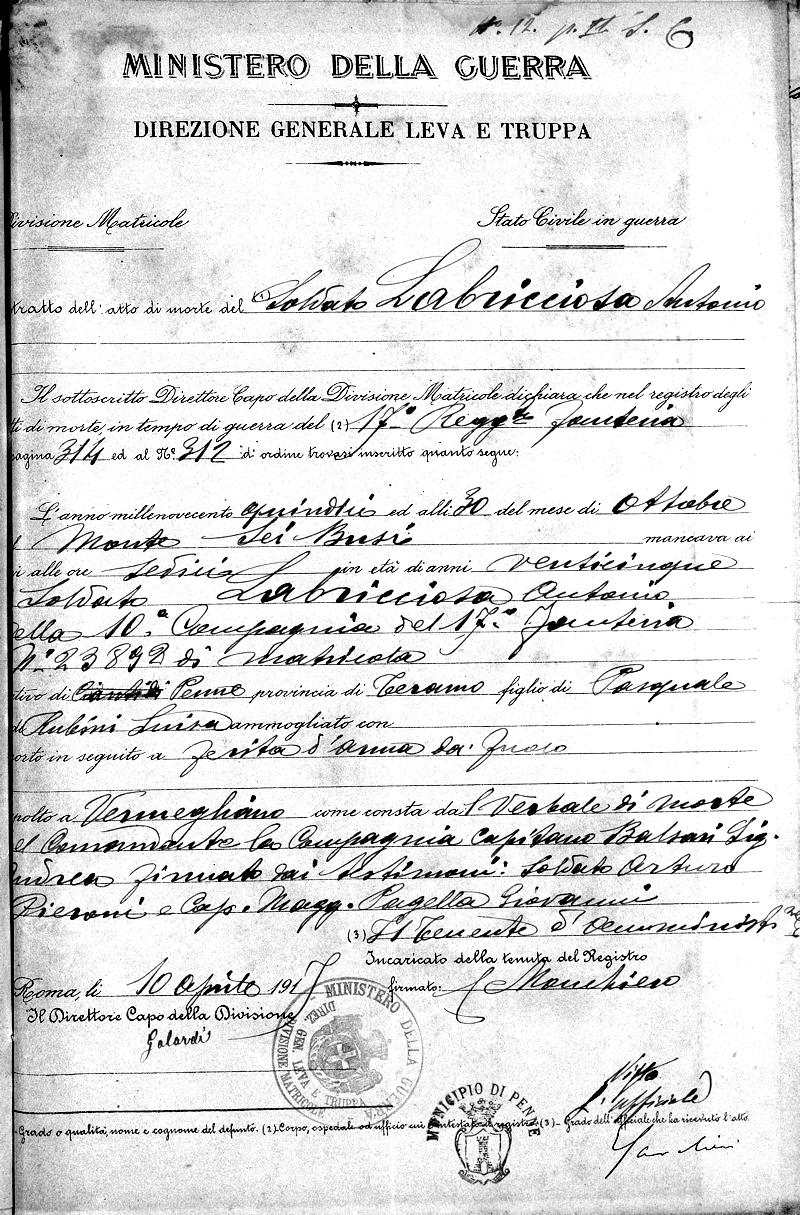 No. 12. p. II S. C
MINISTERO DELLA GUERRA
DIREZIONE GENERALE LEVA E TRUPPA
Divisione Matricole
Stato Civile in guerra
tratto dell'atto di morte del (1) Soldato Labricciosa Antonio
Il sottoscritto Direttore Capo della Divisione Matricole dichiara che nel registro degli
ti di morte, in tempo di guerra del (2) 17º Reggte Fanteria
pagina 314 ed al Nº 312 d'ordine trovasi inscritto quanto segue:
L'anno millenovecento quindici ed alli 30 del mese di Ottobre
l Monte Sei Busi mancava ai
i alle ore sedici in età di anni venticinque
Soldato Labricciosa Antonio
della 10.a Compagnia del 17.º Fanteria
Nº 23892 di matricola
ativo di Penne provincia di Teramo figlio di Pasquale
di Rubini Luisa ammogliato con
orto in seguito a ferita d'arma da fuoco
polto a Vermegliano come consta dal Verbale di morte
el Comandante la Compagnia Capitano Balsari Sig.
Andrea firmato dai testimoni: Soldato Arturo
Pieroni e Cap. Magg. Pagella Giovanni
(3) Il Tenente d'
Incaricato della tenuta del Registro
Roma, li 10 Aprile 1917
firmato:
Il Direttore Capo della Divisione
Galardi
MINISTERO DELLA GUERRA
DIREZ. GEN. LEVA E TRUPPA
DIVISIONE MATRICOLE
Visto
L'Ufficiale
MUNICIPIO DI PENNE
- Grado o qualità, nome e cognome del defunto. (2) Corpo, ospedale od ufficio cui è intestato il registro (3) - Grado dell'officiale che ha ricevuto l'atto.